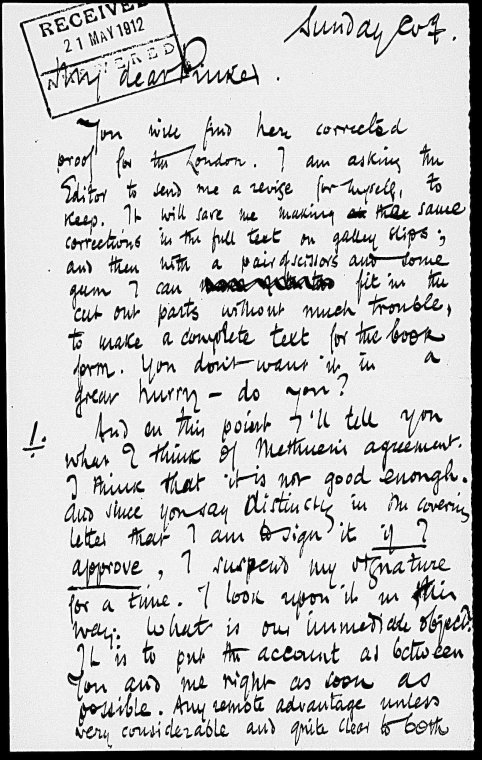 RECEIVED
21 MAY 1912
ANSWERED
Sunday Eve.
My dear Pinker.
You will find here corrected
proof for the London. I am asking the
Editor to send me a revise for myself, to
keep. It will save me making the same
corrections in the full text on galley slips;
and then with a pair of scissors and some
gum I can fit in the
cut out parts without much trouble,
to make a complete text for the book
form. You don't want it in a
great hurry – do you?
1. And on this point I'll tell you
what I think of Methuen's agreement.
I think that it is not good enough.
And since you say distinctly in the covering
letter that I am to sign it if I
approve, I suspend my signature
for a time. I look upon it in this
way. What is our immediate object?
It is to put the account as between
You and me right as soon as
possible. Any remote advantage unless
very considerable and quite clear to both